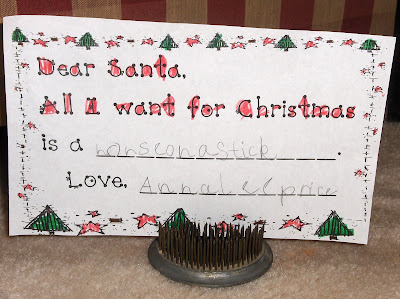 Dear Santa,
All I want for Christmas
is a horseonastick.
Love, Annaleeprice